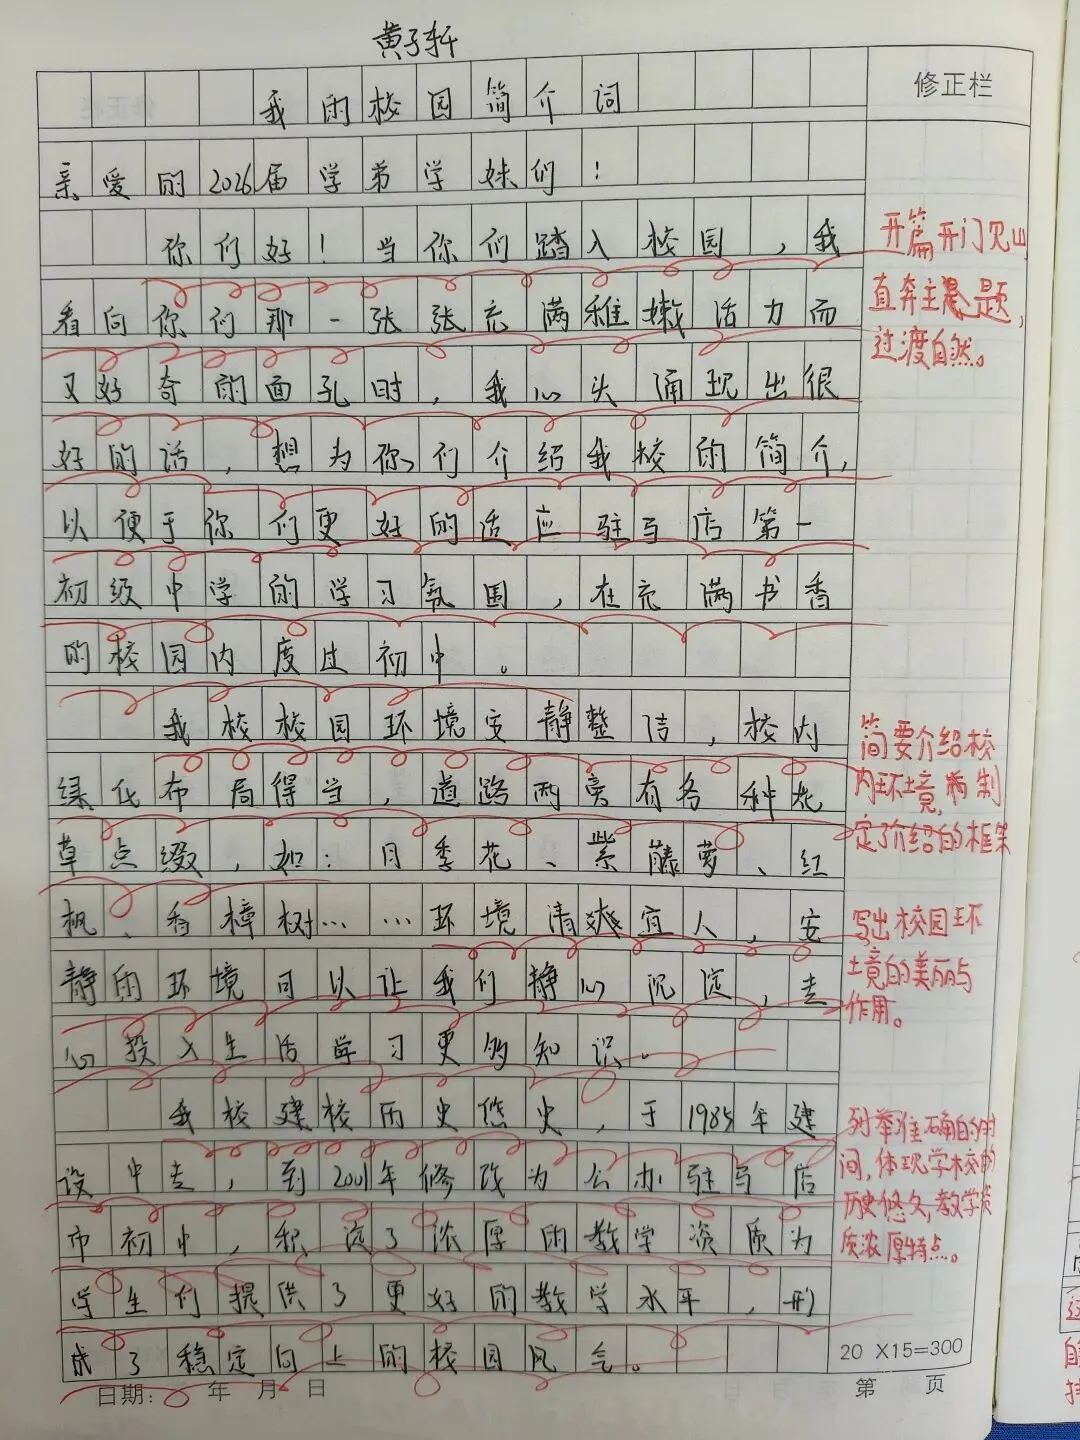 黄子轩
修正栏
我的校园简介词
亲爱的2026届学弟学妹们！
你们好！当你们踏入校园，我
看向你们那一张张充满稚嫩活力而
又好奇的面孔时，我心头涌现出很
好的话，想为你们介绍我校的简介，
以便于你们更好的适应驻马店第一
初级中学的学习氛围，在充满书香
的校园内度过初中。
我校校园环境安静整洁，校内
绿化布局得当，道路两旁有各种花
草点缀，如：月季花、紫藤萝、红
枫、香樟树……环境清爽宜人，安
静的环境可以让我们静心沉淀，走
心投入生活学习更的知识。
我校建校历史悠史，于1985年建
设中走，到2001年修改为公办驻马店
市初中，积淀了浓厚的教学资质为
学生们提供了更好的教学水平，形
成了稳定向上的校园风气。
开篇开门见山，
直奔主题，
过渡自然。
简要介绍校
内环境，制
定了介绍的框架
写出校园环
境的美丽与
作用。
列举准确的时
间，体现学校的
历史悠久，教学资
质浓厚特点。
20 X15=300
日期： 年 月 日
第 页